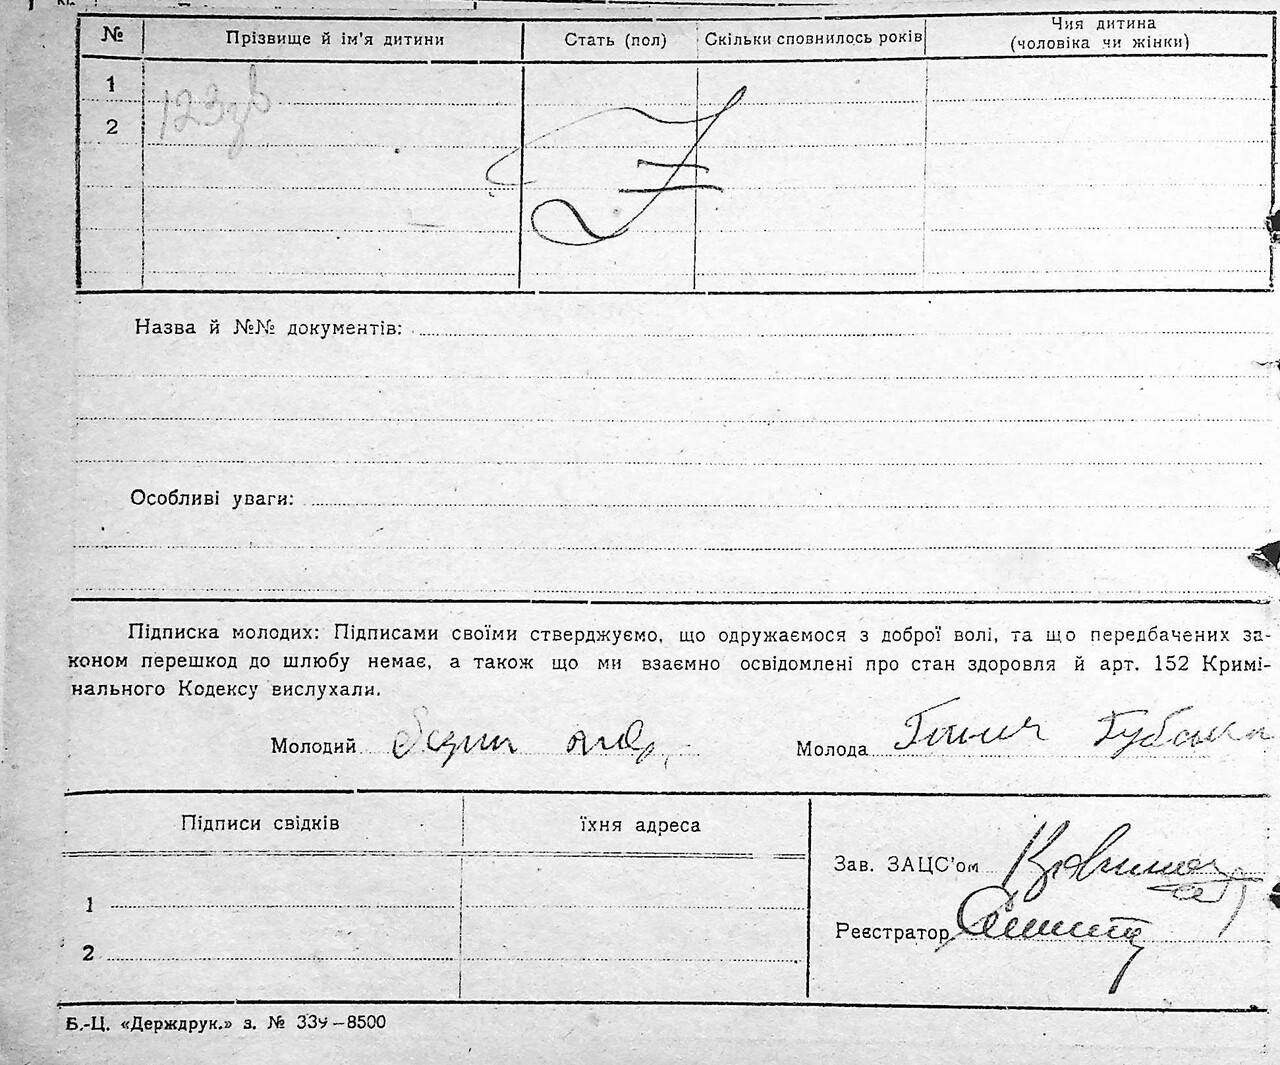 № Прізвище й ім'я дитини Стать (пол) Скільки сповнилось років Чия дитина (чоловіка чи жінки)
1
2
123зв
Назва й №№ документів:
Особливі уваги:
Підписка молодих: Підписами своїми стверджуємо, що одружаємося з доброї волі, та що передбачених за-
коном перешкод до шлюбу немає, а також що ми взаємно освідомлені про стан здоровля й арт. 152 Кримі-
нального Кодексу вислухали.
Молодий Молода
Підписи свідків їхня адреса
Зав. ЗАЦС'ом
1
Реєстратор
2
Б.-Ц. «Держдрук.» з. № 339—8500